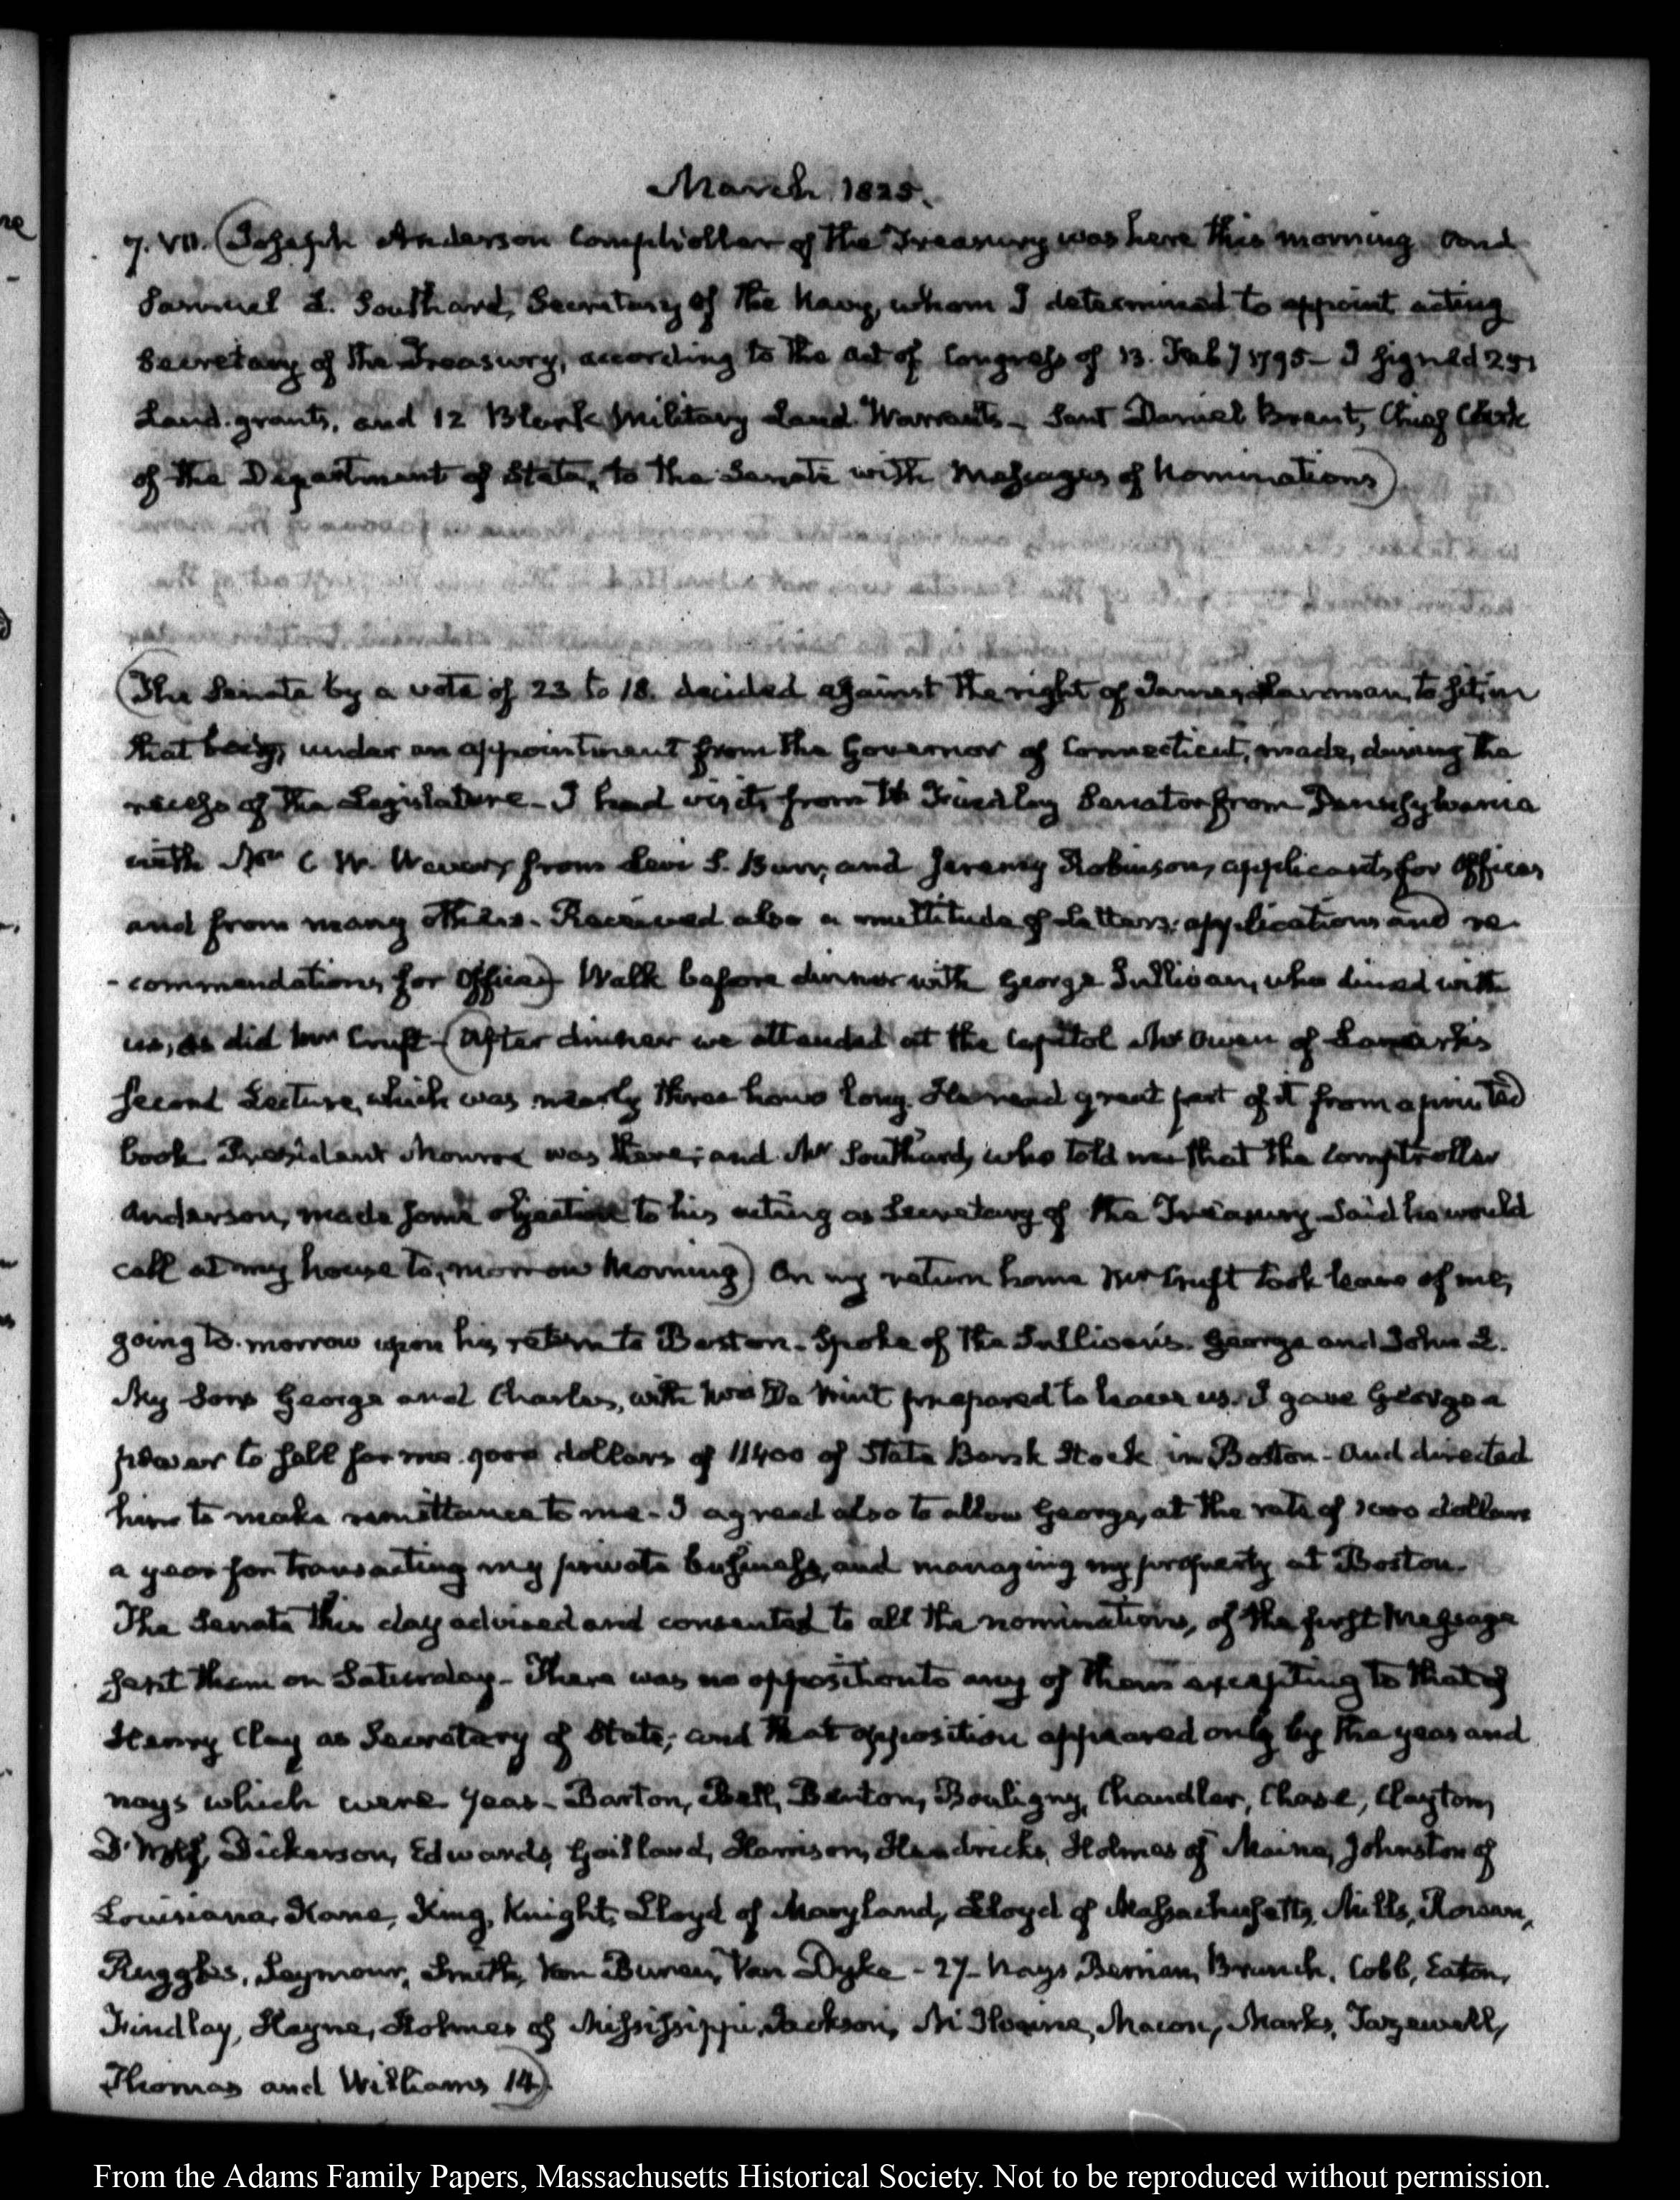 March 1825.
7. VII. (Joseph Anderson Comptroller of the Treasury was here this morning and
Samuel L. Southard, Secretary of the Navy, whom I determined to appoint acting
Secretary of the Treasury, according to the act of Congress of 13. Feby 1795— I signed 251
Land-grants, and 12 Blank Military Land Warrants— Sent Daniel Brent, Chief Clerk
of the Department of State, to the Senate with Messages of Nominations)
(The Senate by a vote of 23 to 18. decided against the right of James Lanman, to sit in
that body, under an appointment from the Governor of Connecticut, made, during the
recess of the Legislature— I had visits from Mr Findlay Senator from Pennsylvania
with Mr C W. Wever, from Levi S. Burr, and Jeremy Robinson, applicants for Offices
and from many others— Received also a multitude of Letters; applications and re-
-commendations for Offices) Walk before dinner with George Sullivan, who dined with
us, as did Mr Cruft— (After dinner we attended at the Capitol Mr Owen of Lanark's
second Lecture, which was nearly three hours long. He read great part of it from a printed
book. President Monroe was there; and Mr Southard, who told me that the Comptroller
Anderson, made some objection to his acting as Secretary of the Treasury. Said he would
call at my house to-morrow Morning) On my return home Mr Cruft took leave of me,
going to-morrow upon his return to Boston— Spoke of the Sullivan's. George and John L.
My Sons George and Charles, with Mr De Wint prepared to leave us. I gave George a
power to sell for me 9000 dollars of 11400 of State Bank Stock in Boston— and directed
him to make remittance to me— I agreed also to allow George, at the rate of 1000 dollars
a year for transacting my private business, and managing my property at Boston.
The Senate this day advised and consented to all the nominations, of the first Message
sent them on Saturday— There was no opposition to any of them excepting to that of
Henry Clay as Secretary of State; and that opposition appeared only by the yeas and
nays which were yeas— Barton, Bell, Benton, Bouligny, Chandler, Chase, Clayton,
D'Wolf, Dickerson, Edwards, Gaillard, Harrison, Hendricks, Holmes of Maine, Johnston of
Louisiana, Kane, King, Knight, Lloyd of Maryland, Lloyd of Massachusetts, Mills, Rowan,
Ruggles, Seymour, Smith, Van Buren, Van Dyke— 27— Nays Berrian, Branch, Cobb, Eaton,
Findlay, Hayne, Holmes of Mississippi, Jackson, McIlvaine, Macon, Marks, Tazewell,
Thomas and Williams 14)
From the Adams Family Papers, Massachusetts Historical Society. Not to be reproduced without permission.